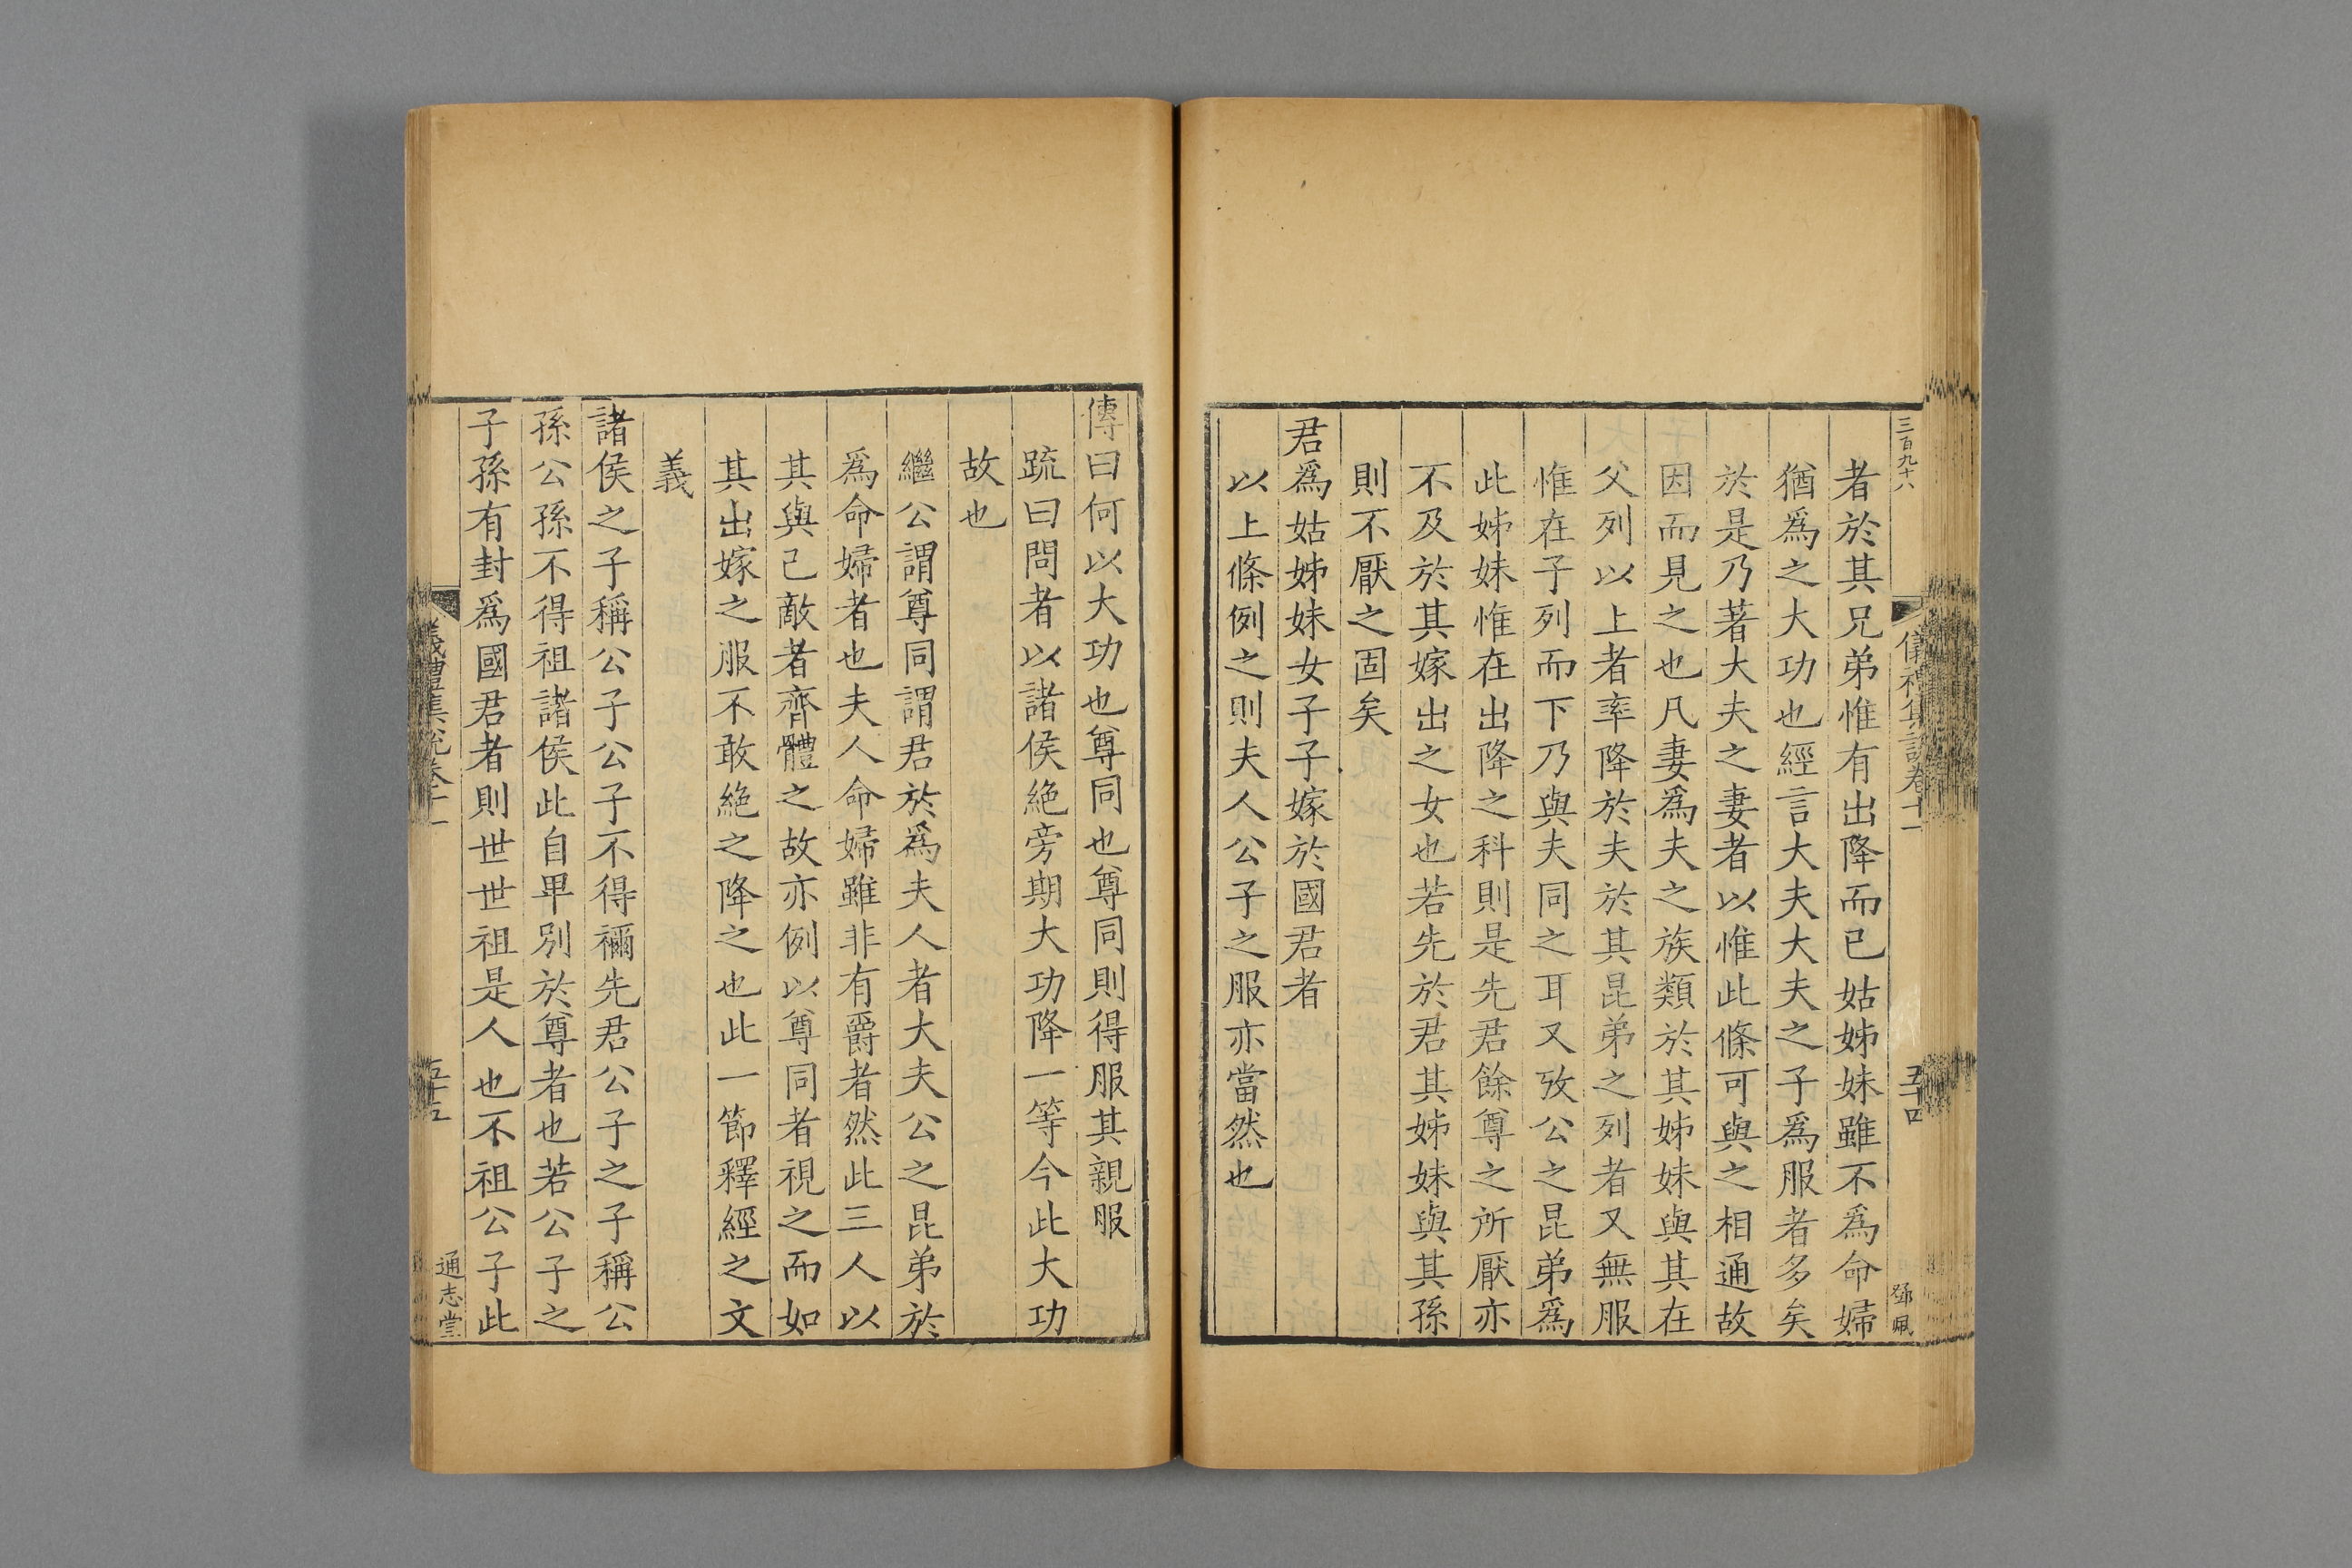 三百九十八
儀禮集說卷十一
五十四
鄧珮
者於其兄弟惟有出降而已姑姊妹雖不爲命婦
猶爲之大功也經言大夫大夫之子爲服者多矣
於是乃著大夫之妻者以惟此條可與之相通故
因而見之也凡妻爲夫之族類於其姊妹與其在
父列以上者率降於夫於其昆弟之列者又無服
惟在子列而下乃與夫同之耳又攷公之昆弟爲
此姊妹惟在出降之科則是先君餘尊之所厭亦
不及於其嫁出之女也若先於君其姊妹與其孫
則不厭之固矣
君爲姑姊妹女子子嫁於國君者
以上條例之則夫人公子之服亦當然也
傳曰何以大功也尊同也尊同則得服其親服
疏曰問者以諸侯絶旁期大功降一等今此大功
故也
繼公謂尊同謂君於爲夫人者大夫公之昆弟於
爲命婦者也夫人命婦雖非有爵者然此三人以
其與己敵者齊體之故亦例以尊同者視之而如
其出嫁之服不敢絶之降之也此一節釋經之文
義
諸侯之子稱公子公子不得禰先君公子之子稱公
孫公孫不得祖諸侯此自卑別於尊者也若公子之
子孫有封爲國君者則世世祖是人也不祖公子此
儀禮集說卷十一
五十五
通志堂